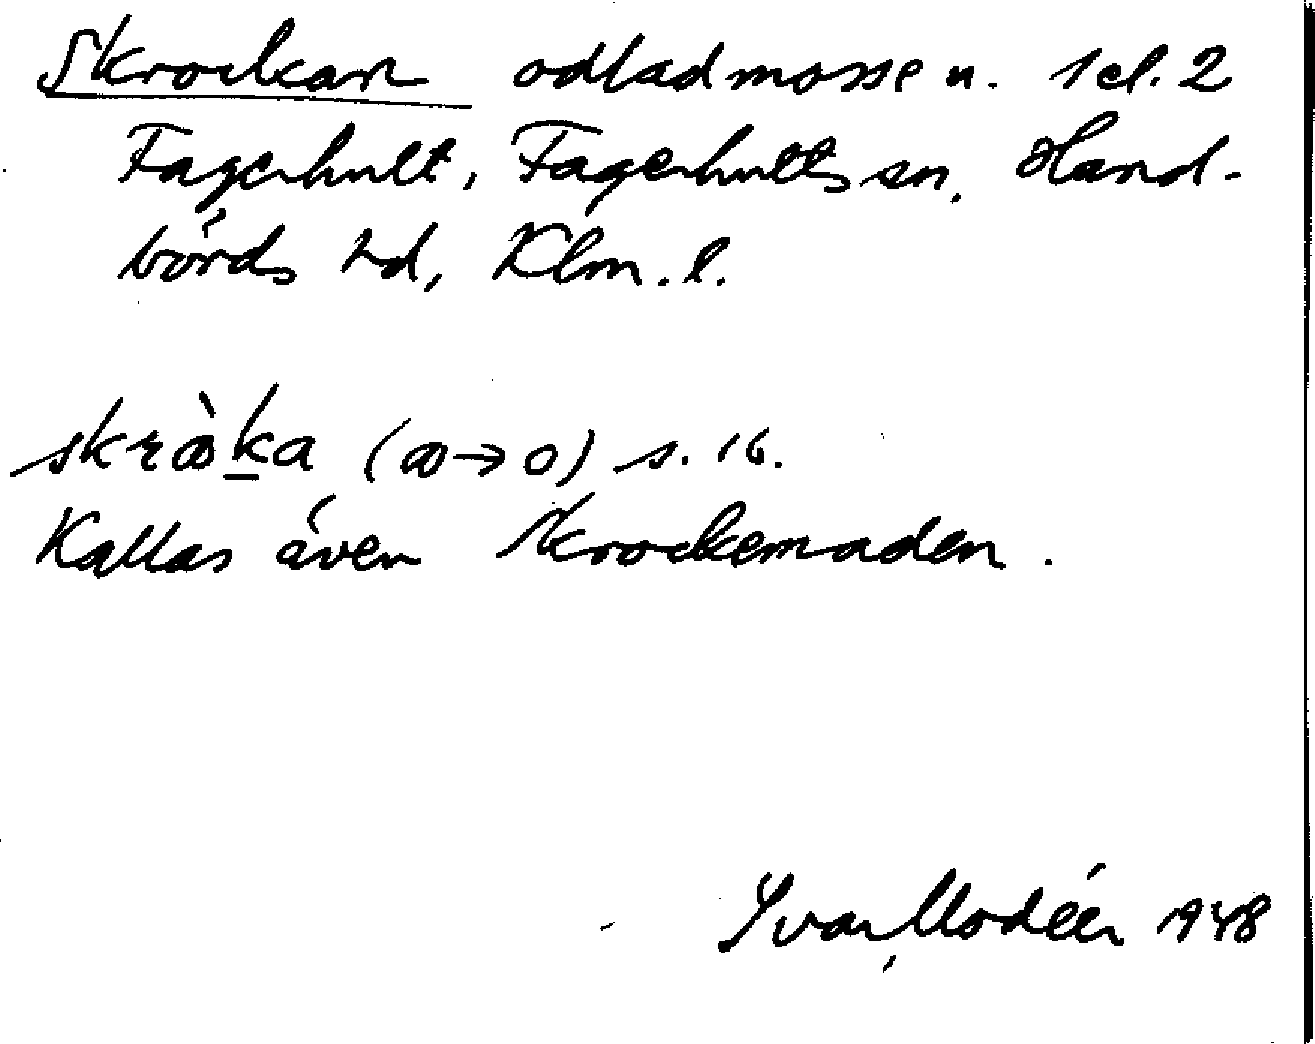 Skrockan odlad mosse u. 1 el. 2
Fagerhult, Fagerhults sn, Hand-
börds hd, Klm. l.
skrꝏ̀ka (ꝏ→o) s. 16.
Kallas även Skrockemaden.
Ivar Modéer 1948